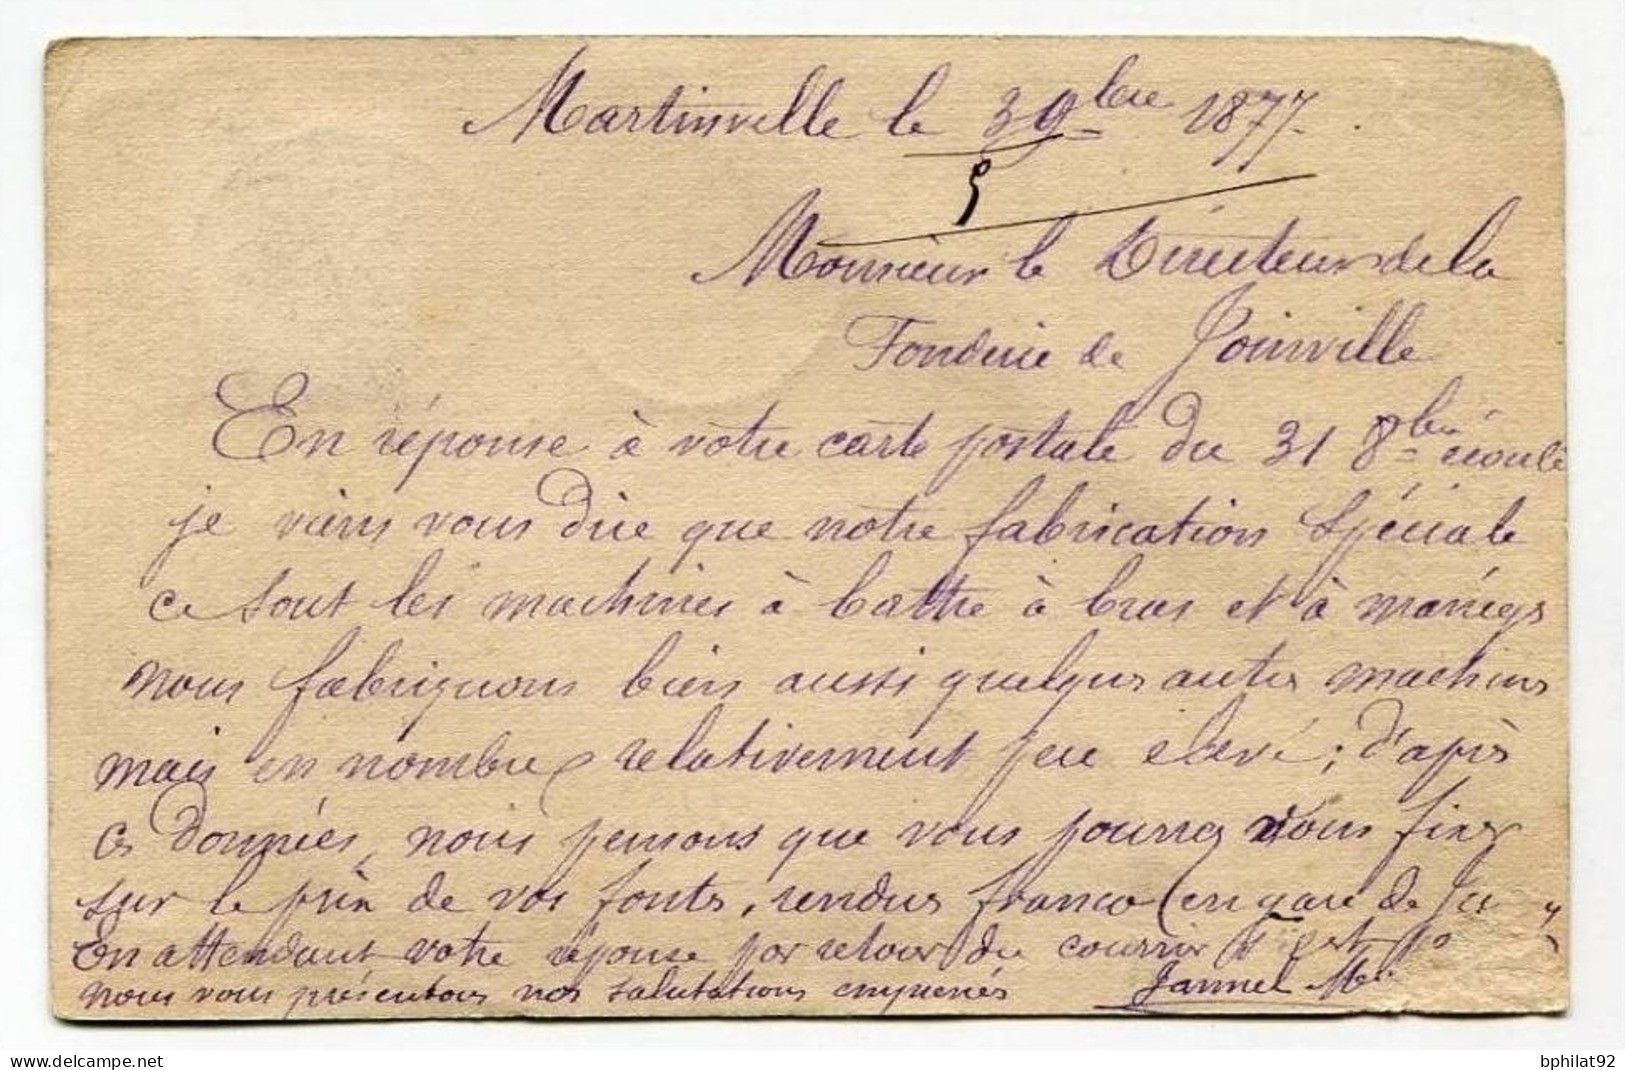 Martinvelle le 3 9bre 1877
5
Monsieur le Directeur de la
Fonderie de Joinville
En réponse à votre carte postale du 31 8bre écoulé
je viens vous dire que notre fabrication spéciale
ce sont les machines à battre à bras et à manège
nous fabriquons bien aussi quelques autres machines
mais en nombre relativement peu elevé ; d'après
ces données, nous pensons que vous pourrez nous fixer
sur le prix de vos fontes, rendus franco (en gare de
En attendant votre réponse par retour du courrier
nous vous présentons nos salutations empressées
bphilat92